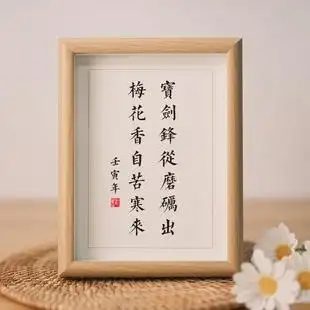 寶劍鋒從磨礪出
梅花香自苦寒來
壬寅年